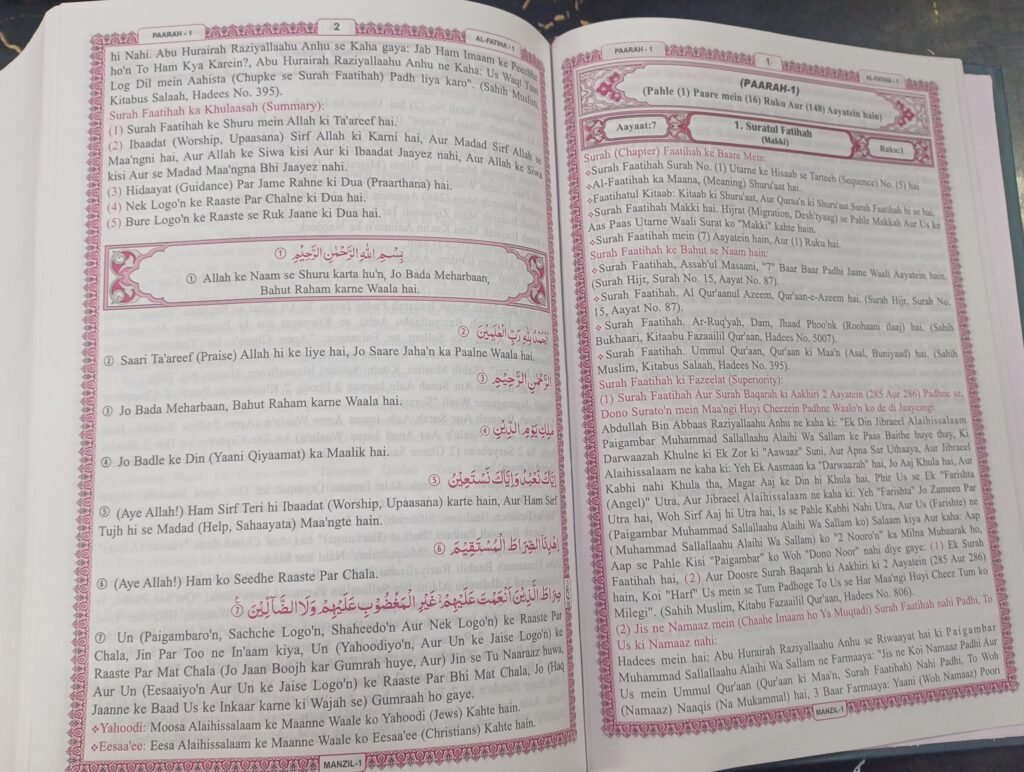 PAARAH - 1
1
AL-FATIHA - 1
(PAARAH-1)
(Pahle (1) Paare mein (16) Ruku Aur (148) Aayatein hain)
Aayaat:7
1. Suratul Fatihah
(Makki)
Ruku:1
Surah (Chapter) Faatihah ke Baare Mein:
❖Surah Faatihah Surah No. (1) Utarne ke Hisaab se Tarteeb (Sequence) No. (5) hai.
❖Al-Faatihah ka Maana, (Meaning) Shuru'aat hai.
❖Faatihatul Kitaab: Kitaab ki Shuru'aat, Aur Quraa'n ki Shuru'aat Surah Faatihah hi se hai.
❖Surah Faatihah Makki hai. Hijrat (Migration, Desh'tyaag) se Pahle Makkah Aur Us ke
Aas Paas Utarne Waali Surat ko "Makki" kahte hain.
❖Surah Faatihah mein (7) Aayatein hain, Aur (1) Ruku hai.
Surah Faatihah ke Bahut se Naam hain:
❖Surah Faatihah, Assab'ul Masaani, "7" Baar Baar Padhi Jaane Waali Aayatein hain.
(Surah Hijr, Surah No. 15, Aayat No. 87).
❖Surah Faatihah. Al Qur'aanul Azeem, Qur'aan-e-Azeem hai. (Surah Hijr, Surah No.
15, Aayat No. 87).
❖Surah Faatihah. Ar-Ruq'yah, Dam, Jhaad Phoo'nk (Roohaani ilaaj) hai. (Sahih
Bukhaari, Kitaabu Fazaailil Qur'aan, Hadees No. 5007).
❖Surah Faatihah. Ummul Qur'aan, Qur'aan ki Maa'n (Asal, Buniyaad) hai. (Sahih
Muslim, Kitabus Salaah, Hadees No. 395).
Surah Faatihah ki Fazeelat (Superiority):
(1) Surah Faatihah Aur Surah Baqarah ki Aakhiri 2 Aayatein (285 Aur 286) Padhne se,
Dono Surato'n mein Maa'ngi Huyi Cheezein Padhne Waalo'n ko de di Jaayengi:
Abdullah Bin Abbaas Raziyallaahu Anhu ne kaha ki: "Ek Din Jibraeel Alaihissalaam
Paigambar Muhammad Sallallaahu Alaihi Wa Sallam ke Paas Baithe huye thay, Ki
Darwaazah Khulne ki Ek Zor ki "Aawaaz" Suni, Aur Apna Sar Uthaaya, Aur Jibraeel
Alaihissalaam ne kaha ki: Yeh Ek Aasmaan ka "Darwaazah" hai, Jo Aaj Khula hai, Aur
Kabhi nahi Khula tha, Magar Aaj ke Din hi Khula hai, Phir Us se Ek "Farishta
(Angel)" Utra, Aur Jibraeel Alaihissalaam ne kaha ki: Yeh "Farishta" Jo Zameen Par
Utra hai, Woh Sirf Aaj hi Utra hai, Is se Pahle Kabhi Nahi Utra, Aur Us (Farishte) ne
(Paigambar Muhammad Sallallaahu Alaihi Wa Sallam ko) Salaam kiya Aur kaha: Aap
(Muhammad Sallallaahu Alaihi Wa Sallam) ko "2 Nooro'n" ka Milna Mubaarak ho,
Aap se Pahle Kisi "Paigambar" ko Woh "Dono Noor" nahi diye gaye: (1) Ek Surah
Faatihah hai, (2) Aur Doosre Surah Baqarah ki Aakhiri ki 2 Aayatein (285 Aur 286)
hain, Koi "Harf" Us mein se Tum Padhoge To Us se Har Maa'ngi Huyi Cheez Tum ko
Milegi". (Sahih Muslim, Kitabu Fazaailil Qur'aan, Hadees No. 806).
(2) Jis ne Namaaz mein (Chaahe Imaam ho Ya Muqtadi) Surah Faatihah nahi Padhi, To
Us ki Namaaz nahi:
Hadees mein hai: Abu Hurairah Raziyallaahu Anhu se Riwaayat hai ki Paigambar
Muhammad Sallallaahu Alaihi Wa Sallam ne Farmaaya: "Jis ne Koi Namaaz Padhi Aur
Us mein Ummul Qur'aan (Qur'aan ki Maa'n, Surah Faatihah) Nahi Padhi, To Woh
(Namaaz) Naaqis (Na Mukammal) hai, 3 Baar Farmaaya: Yaani (Woh Namaaz) Poori
MANZIL-1
PAARAH - 1
2
AL-FATIHA - 1
hi Nahi. Abu Hurairah Raziyallaahu Anhu se Kaha gaya: Jab Ham Imaam ke Peechhe
ho'n To Ham Kya Karein?, Abu Hurairah Raziyallaahu Anhu ne Kaha: Us Waqt Tum
Log Dil mein Aahista (Chupke se Surah Faatihah) Padh liya karo". (Sahih Muslim,
Kitabus Salaah, Hadees No. 395).
Surah Faatihah ka Khulaasah (Summary):
(1) Surah Faatihah ke Shuru mein Allah ki Ta'areef hai.
(2) Ibaadat (Worship, Upaasana) Sirf Allah ki Karni hai, Aur Madad Sirf Allah se
Maa'ngni hai, Aur Allah ke Siwa kisi Aur ki Ibaadat Jaayez nahi, Aur Allah ke Siwa
kisi Aur se Madad Maa'ngna Bhi Jaayez nahi.
(3) Hidaayat (Guidance) Par Jame Rahne ki Dua (Praarthana) hai.
(4) Nek Logo'n ke Raaste Par Chalne ki Dua hai.
(5) Bure Logo'n ke Raaste se Ruk Jaane ki Dua hai.
بِسْمِ اللّٰهِ الرَّحْمٰنِ الرَّحِيْمِ ①
① Allah ke Naam se Shuru karta hu'n, Jo Bada Meharbaan,
Bahut Raham karne Waala hai.
اَلْحَمْدُ لِلّٰهِ رَبِّ الْعٰلَمِيْنَ ②
② Saari Ta'areef (Praise) Allah hi ke liye hai, Jo Saare Jaha'n ka Paalne Waala hai.
الرَّحْمٰنِ الرَّحِيْمِ ③
③ Jo Bada Meharbaan, Bahut Raham karne Waala hai.
مٰلِكِ يَوْمِ الدِّيْنِ ④
④ Jo Badle ke Din (Yaani Qiyaamat) ka Maalik hai.
اِيَّاكَ نَعْبُدُ وَاِيَّاكَ نَسْتَعِيْنُ ⑤
⑤ (Aye Allah!) Ham Sirf Teri hi Ibaadat (Worship, Upaasana) karte hain, Aur Ham Sirf
Tujh hi se Madad (Help, Sahaayata) Maa'ngte hain.
اِهْدِنَا الصِّرَاطَ الْمُسْتَقِيْمَ ⑥
⑥ (Aye Allah!) Ham ko Seedhe Raaste Par Chala.
صِرَاطَ الَّذِيْنَ اَنْعَمْتَ عَلَيْهِمْ غَيْرِ الْمَغْضُوْبِ عَلَيْهِمْ وَلَا الضَّآلِّيْنَ ⑦
⑦ Un (Paigambaro'n, Sachche Logo'n, Shaheedo'n Aur Nek Logo'n) ke Raaste Par
Chala, Jin Par Too ne In'aam kiya, Un (Yahoodiyo'n, Aur Un ke Jaise Logo'n) ke
Raaste Par Mat Chala (Jo Jaan Boojh kar Gumrah huye, Aur) Jin se Tu Naaraaz huwa,
Aur Un (Eesaaiyo'n Aur Un ke Jaise Logo'n) ke Raaste Par Bhi Mat Chala, Jo (Haq
Jaanne ke Baad Us ke Inkaar karne ki Wajah se) Gumraah ho gaye.
❖Yahoodi: Moosa Alaihissalaam ke Maanne Waale ko Yahoodi (Jews) Kahte hain.
❖Eesaa'ee: Eesa Alaihissalaam ke Maanne Waale ko Eesaa'ee (Christians) Kahte hain.
MANZIL-1